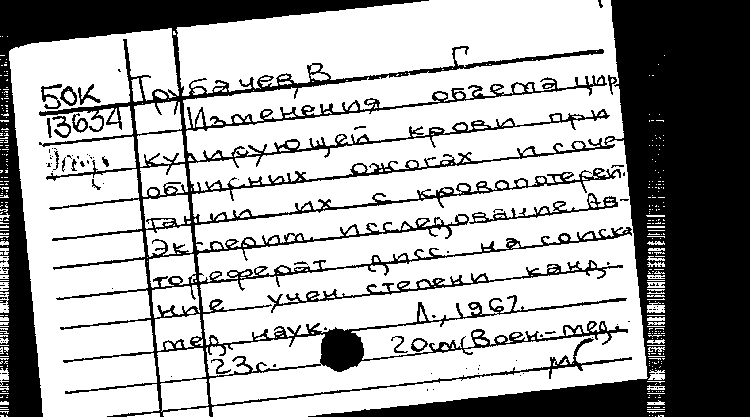 50к Трубачев, В Г
13634 Изменения объема цир
кулирующей крови при
обширных ожогах и соче
тании их с кровопотерей.
Эксперит. исследование. Ав-
тореферат дисс. на соиска
ние учен. степени канд.
мед. наук. Л., 1967.
23с. 20см (Воен.-мед.